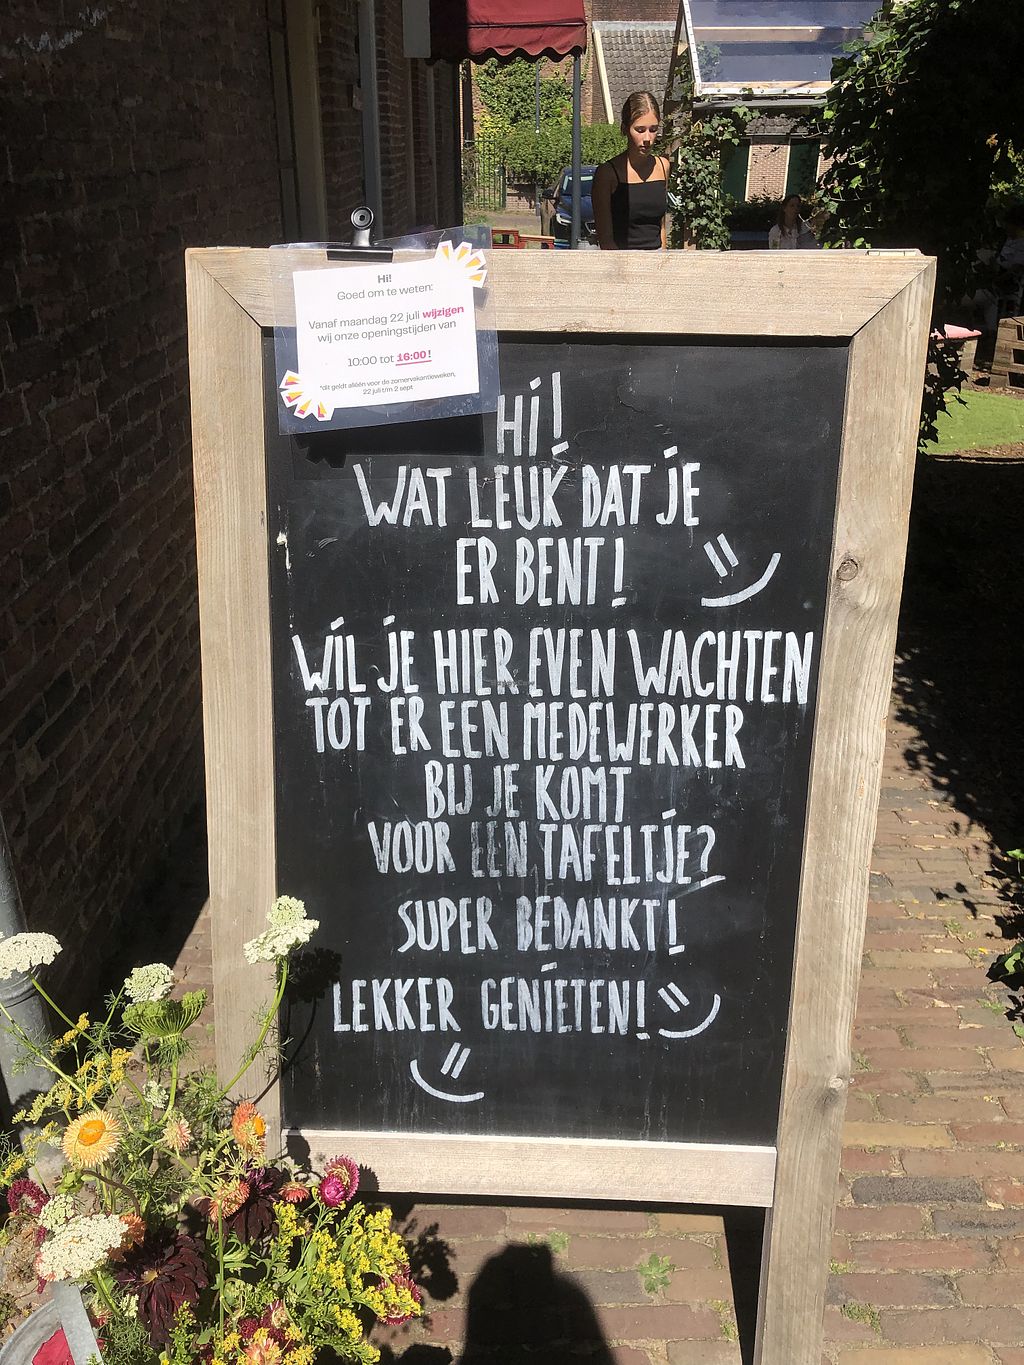 Hi!
Goed om te weten:
Vanaf maandag 22 juli wijzigen
wij onze openingstijden van
10:00 tot 16:00!
*dit geldt alléén voor de zomervakantieweken,
22 juli t/m 2 sept
Hi!
WAT LEUK DAT JE
ER BENT!
WIL JE HIER EVEN WACHTEN
TOT ER EEN MEDEWERKER
BIJ JE KOMT
VOOR EEN TAFELTJE?
SUPER BEDANKT!
LEKKER GENIETEN!